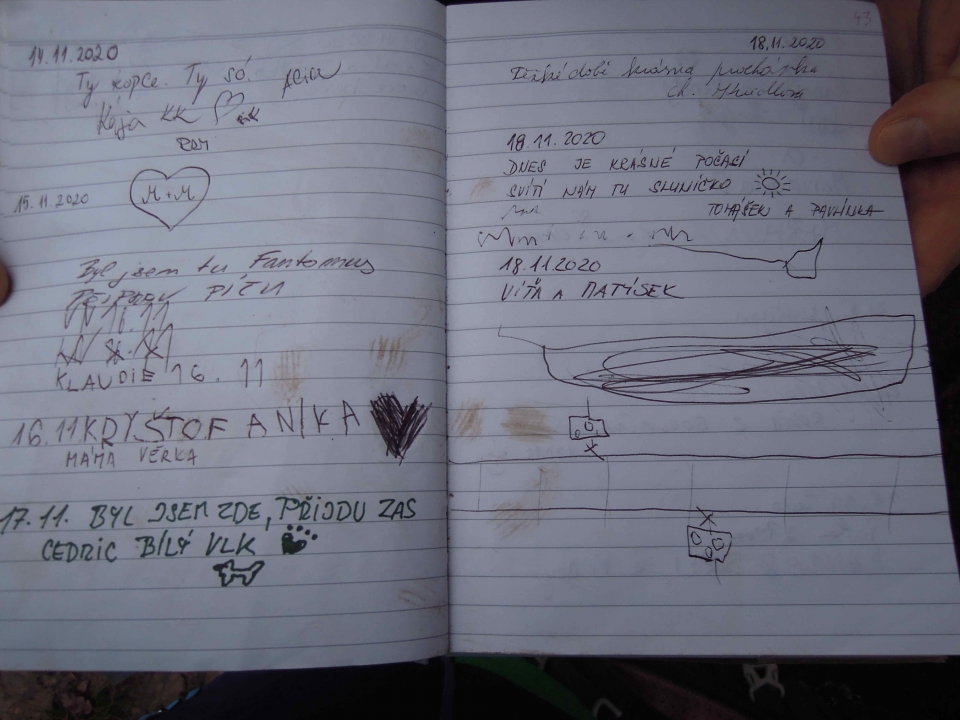 14.11.2020
Ty kopce. Ty só
Kája KK
15.11.2020
M+M
Byl jsem tu, Fantomas
KLAUDIE 16. 11
16.11 KRYŠTOF ANIKA
MÁMA VĚRKA
17.11. BYL JSEM ZDE, PŘIJDU ZAS
CEDRIC BÍLÝ VLK
43
18.11.2020
době krásná procházka
18.11.2020
DNES JE KRÁSNÉ POČASÍ
SVÍTÍ NÁM TU SLUNÍČKO
TOMÁŠEK A PAVLÍNKA
18.11.2020
VÍŤA A MATÝSEK